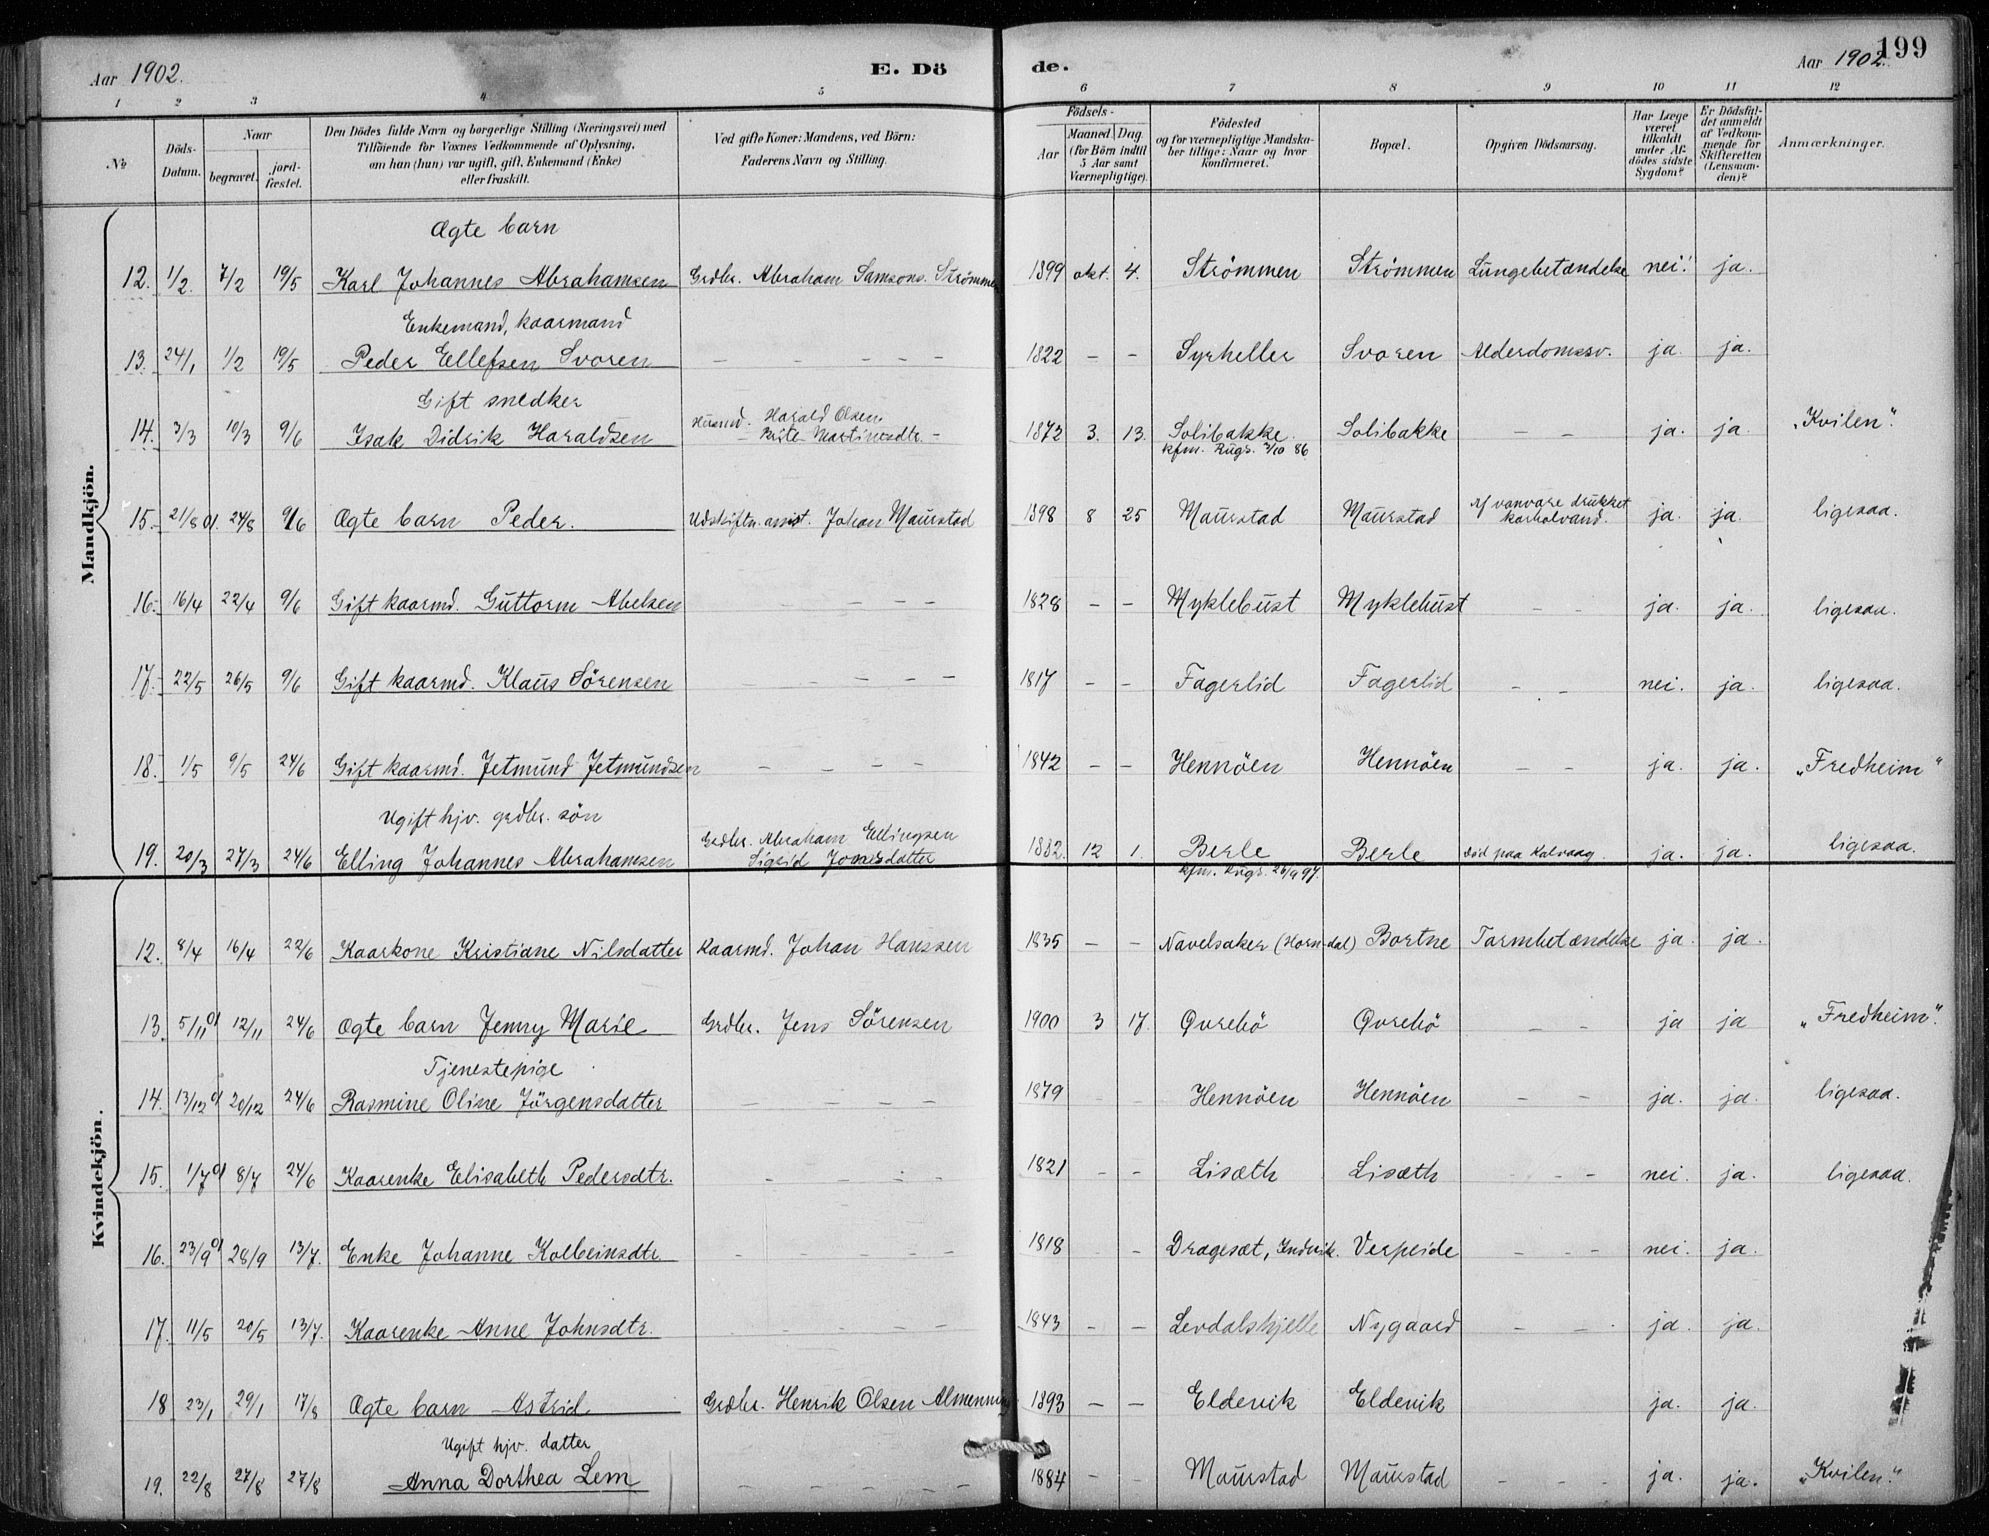 Aar 1902. E. Dö de. Aar 1902. 199
1 2 3 4 5 6 7 8 9 10 11 12
No
Döds-Datum.
Naar
begravet.
jord-fæstet.
Den Dödes fulde Navn og borgerlige Stilling (Næringsvei) med
Tilföiende for Voxnes Vedkommende af Oplysning,
om han (hun) var ugift, gift, Enkemand (Enke)
eller fraskilt.
Ved gifte Koner: Mandens, ved Börn:
Faderens Navn og Stilling.
Födsels-
Aar
Maaned. Dag.
(for Börn indtil
5 Aar samt
Værnepligtige).
Födested
og for værnepligtige Mandska-
ber tillige: Naar og hvor
konfirmeret.
Bopæl.
Opgiven Dödsaarsag.
Har Læge
været
tilkaldt
under Af-
dödes sidste
Sygdom?
Er Dödsfal-
det anmeldt
af Vedkom-
mende for
Skifteretten
(Lensman-
den)?
Anmærkninger.
Mandkjön.
Ægte barn
12. 1/2 7/2 19/5 Karl Johannes Abrahamsen Grdbr. Abraham Samsons. Strömmen 1899 okt. 4. Strömmen Strömmen Lungebetændelse nei! ja.
Enkemand, kaarmand
13. 24/1 1/2 19/5 Peder Ellefsen Svoren — — — — — 1822 – – Syrheller Svoren Alderdomssv. ja. ja.
Gift snedker
14. 3/3 10/3 9/6 Isak Didrik Haraldsen Husmd. Harald Olsen 1872 3. 13. Solibakke Solibakke – – ja. ja. "Kvilen".
– Brite Martinusdtr. – kfm. Rugs. 3/10 86
15. 21/8 01. 24/8 9/6 Ægte barn Peder. Udskiftn. assist. Johan Maurstad 1898 8 25 Maurstad Maurstad Af vanvare drukket ja. ja. ligesaa.
karbolvand.
16. 16/4 22/4 9/6 Gift kaarmd. Guttorm Abelsen – – – 1828 – – Myklebust Myklebust – – ja. ja. ligesaa.
17. 22/5 26/5 9/6 Gift kaarmd. Klaus Sörensen – – – – – 1817 – – Fagerlid Fagerlid – – nei. ja. ligesaa.
18. 1/5 9/5 24/6 Gift kaarmd. Jetmund Jetmundsen – – – – 1842 – – Hennöen Hennöen – – ja. ja. "Fredheim"
Ugift hjv. grdbr. sön
19. 20/3 27/3 24/6 Elling Johannes Abrahamsen Grdbr. Abraham Ellingsen 1882. 12 1. Berle Berle död paa Kalvaag. ja. ja. ligesaa.
Sigrid Jonesdatter kfm. Rugs. 26/9 97.
Kvindekjön.
12. 8/4 16/4 22/6 Kaarkone Kristiane Nilsdatter Kaarmd. Johan Hanssen 1835 – – Navelsaker (Horndal) Bortne Tarmbetændelse ja. ja.
13. 5/11 01 12/11 24/6 Ægte barn Jenny Marie Grdbr. Jens Sörensen 1900 3 17. Qvrebö Qvrebö – – ja ja "Fredheim".
Tjenestepige
14. 13/12 01 20/12 24/6 Rasmine Oline Jörgensdatter – – – – 1879 – – Hennöen Hennöen – – ja. ja. ligesaa.
15. 1/7 01 8/7 24/6 Kaarenke Elisabeth Pedersdtr. – – – – 1821 – – Lisæth Lisæth – – – nei. ja. ligesaa.
16. 23/9 01 28/9 13/7. Enke Johanne Kolbeinsdtr. – – – – – 1818 – Dragesæt, Indvik. Verpeide – – – nei. ja.
17. 11/5 20/5 13/7. Kaarenke Anne Johnsdtr. – – – – – 1843 – – Levdalshjelle Nygaard – – ja. ja.
18 23/1 29/1 17/8 Ægte barn Astrid Grdbr. Henrik Olsen Almenning 1893 – – Eldevik Eldevik ja. ja.
Ugift hjv. datter
19. 22/8 27/8 27/8 Anna Dorthea Lem – – – – – 1884 – – Maurstad Maurstad – – – ja. ja. "Kvilen."